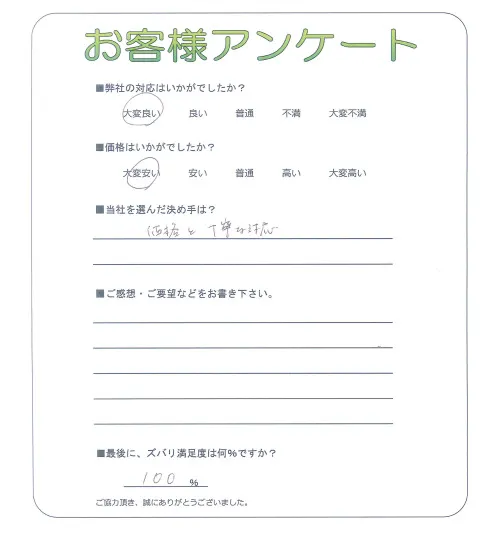 お客様アンケート
■弊社の対応はいかがでしたか？
大変良い 良い 普通 不満 大変不満
■価格はいかがでしたか？
大変安い 安い 普通 高い 大変高い
■当社を選んだ決め手は？
価格と丁寧な対応
■ご感想・ご要望などをお書き下さい。
■最後に、ズバリ満足度は何%ですか？
100 %
ご協力頂き、誠にありがとうございました。